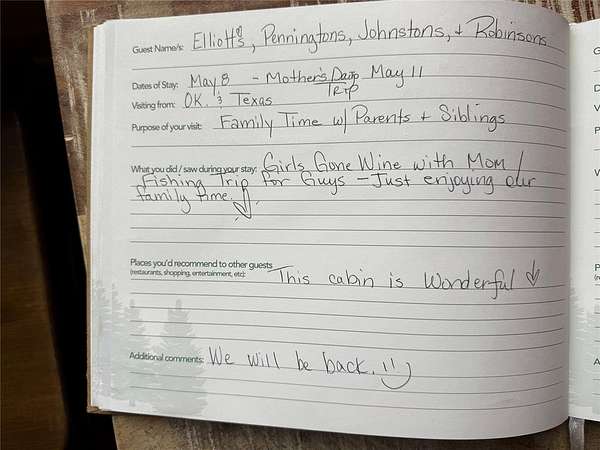 Guest Name/s: Elliott's, Penningtons, Johnstons, + Robinsons
Dates of Stay: May 8 - Mother's Day May 11
Trip
Visiting from: OK. & Texas
Purpose of your visit: Family Time w/ Parents + Siblings
What you did / saw during your stay: Girls Gone Wine with Mom /
Fishing Trip for Guys - Just enjoying our
family time.
Places you'd recommend to other guests
(restaurants, shopping, entertainment, etc): This cabin is Wonderful
Additional comments: We will be back.
G
D
V
P
P
A